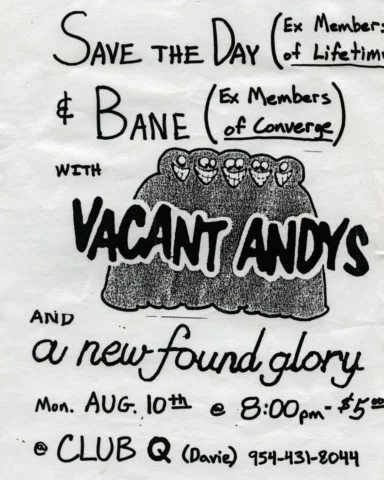 SAVE THE DAY (Ex Members of Lifetime
& BANE (Ex Members of Converge)
WITH
VACANT ANDYS
AND
a new found glory
Mon. AUG. 10th @ 8:00pm - $5.00
@ CLUB Q (Davie) 954-431-8044